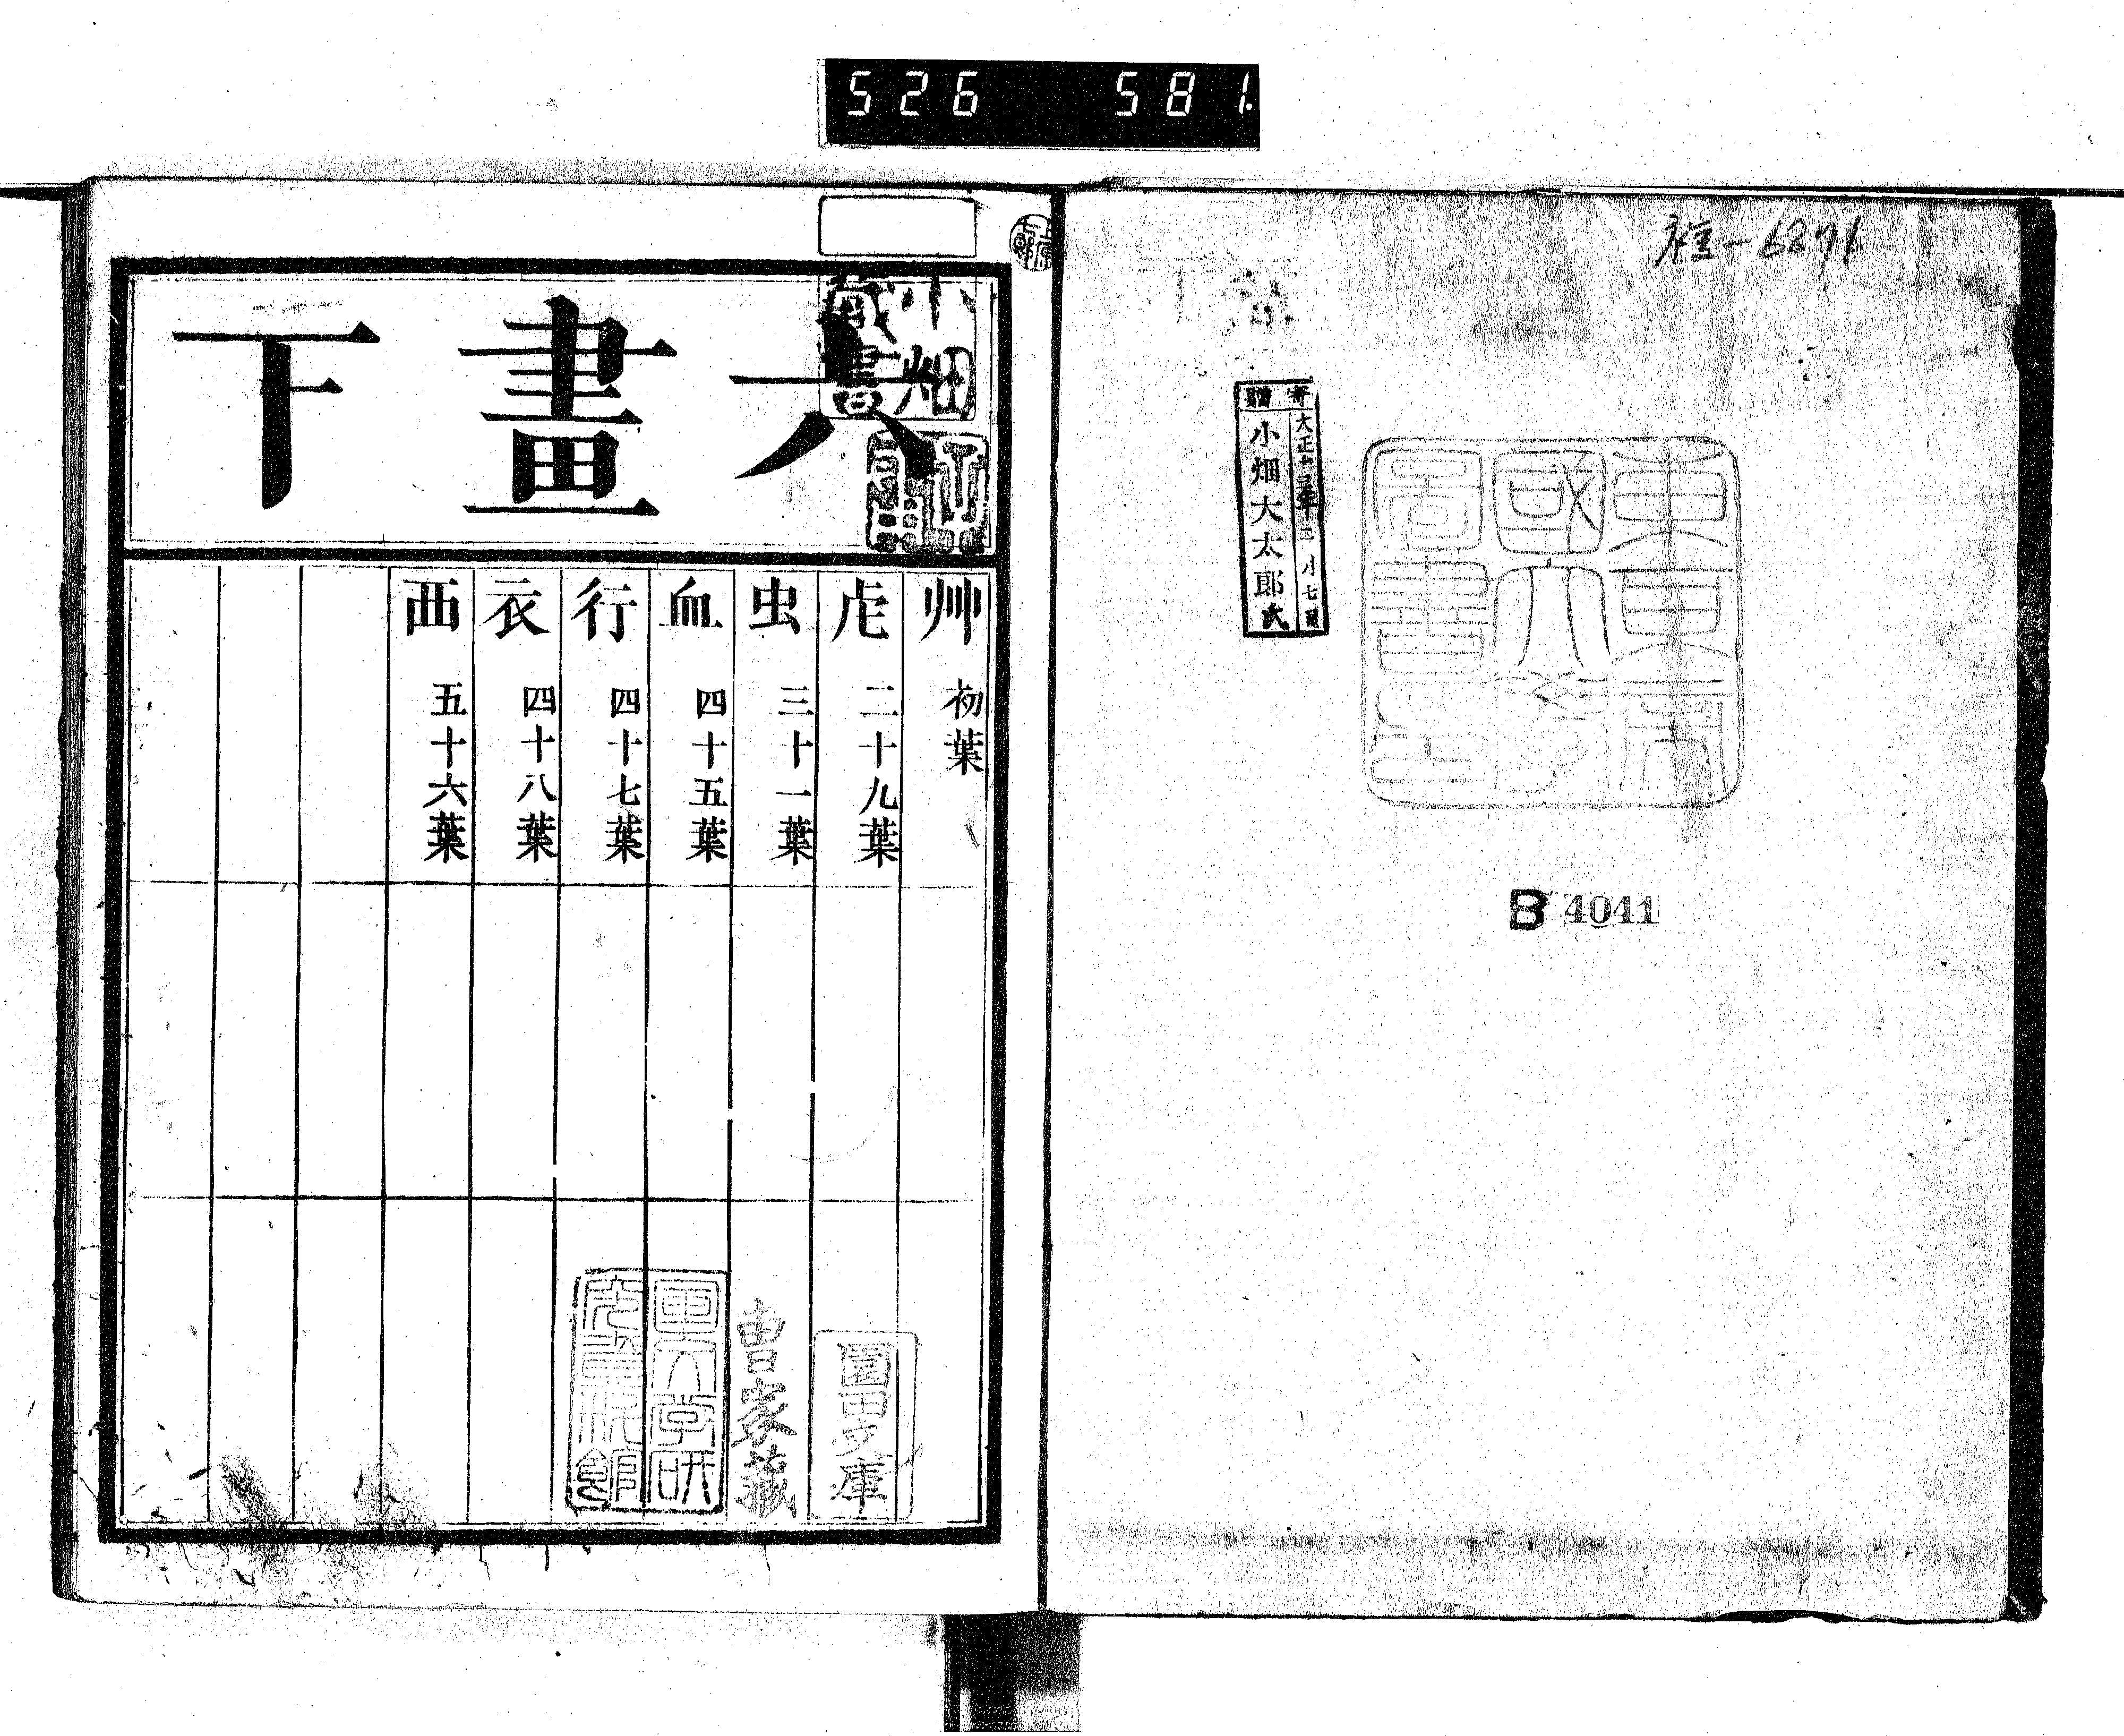 526 581.
雑-6271
寄贈
大正十三年三小七
小畑大太郎氏
東東帝
國大學
圖書印
B 4041
小畑
藏書
六畫下
艸 初葉
虍 二十九葉
虫 三十一葉
血 四十五葉
行 四十七葉
衣 四十八葉
襾 五十六葉
曹家藏